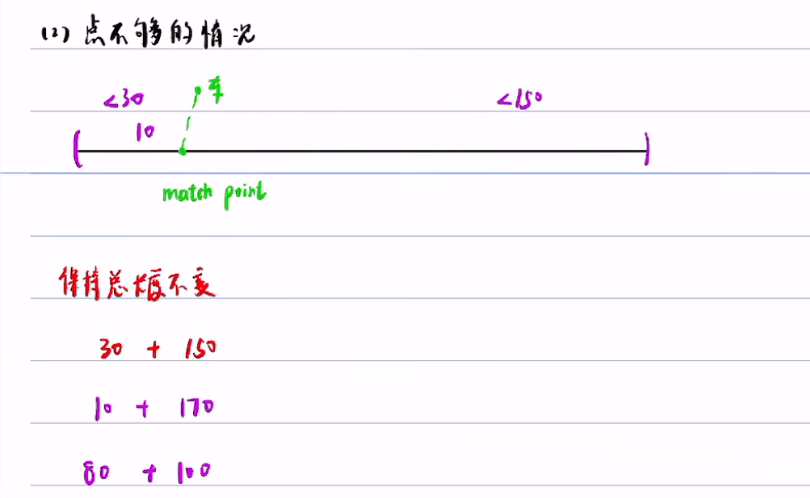 (2) 点不够的情况
<30 车 <150
10
match point
保持总长度不变
30 + 150
10 + 170
80 + 100